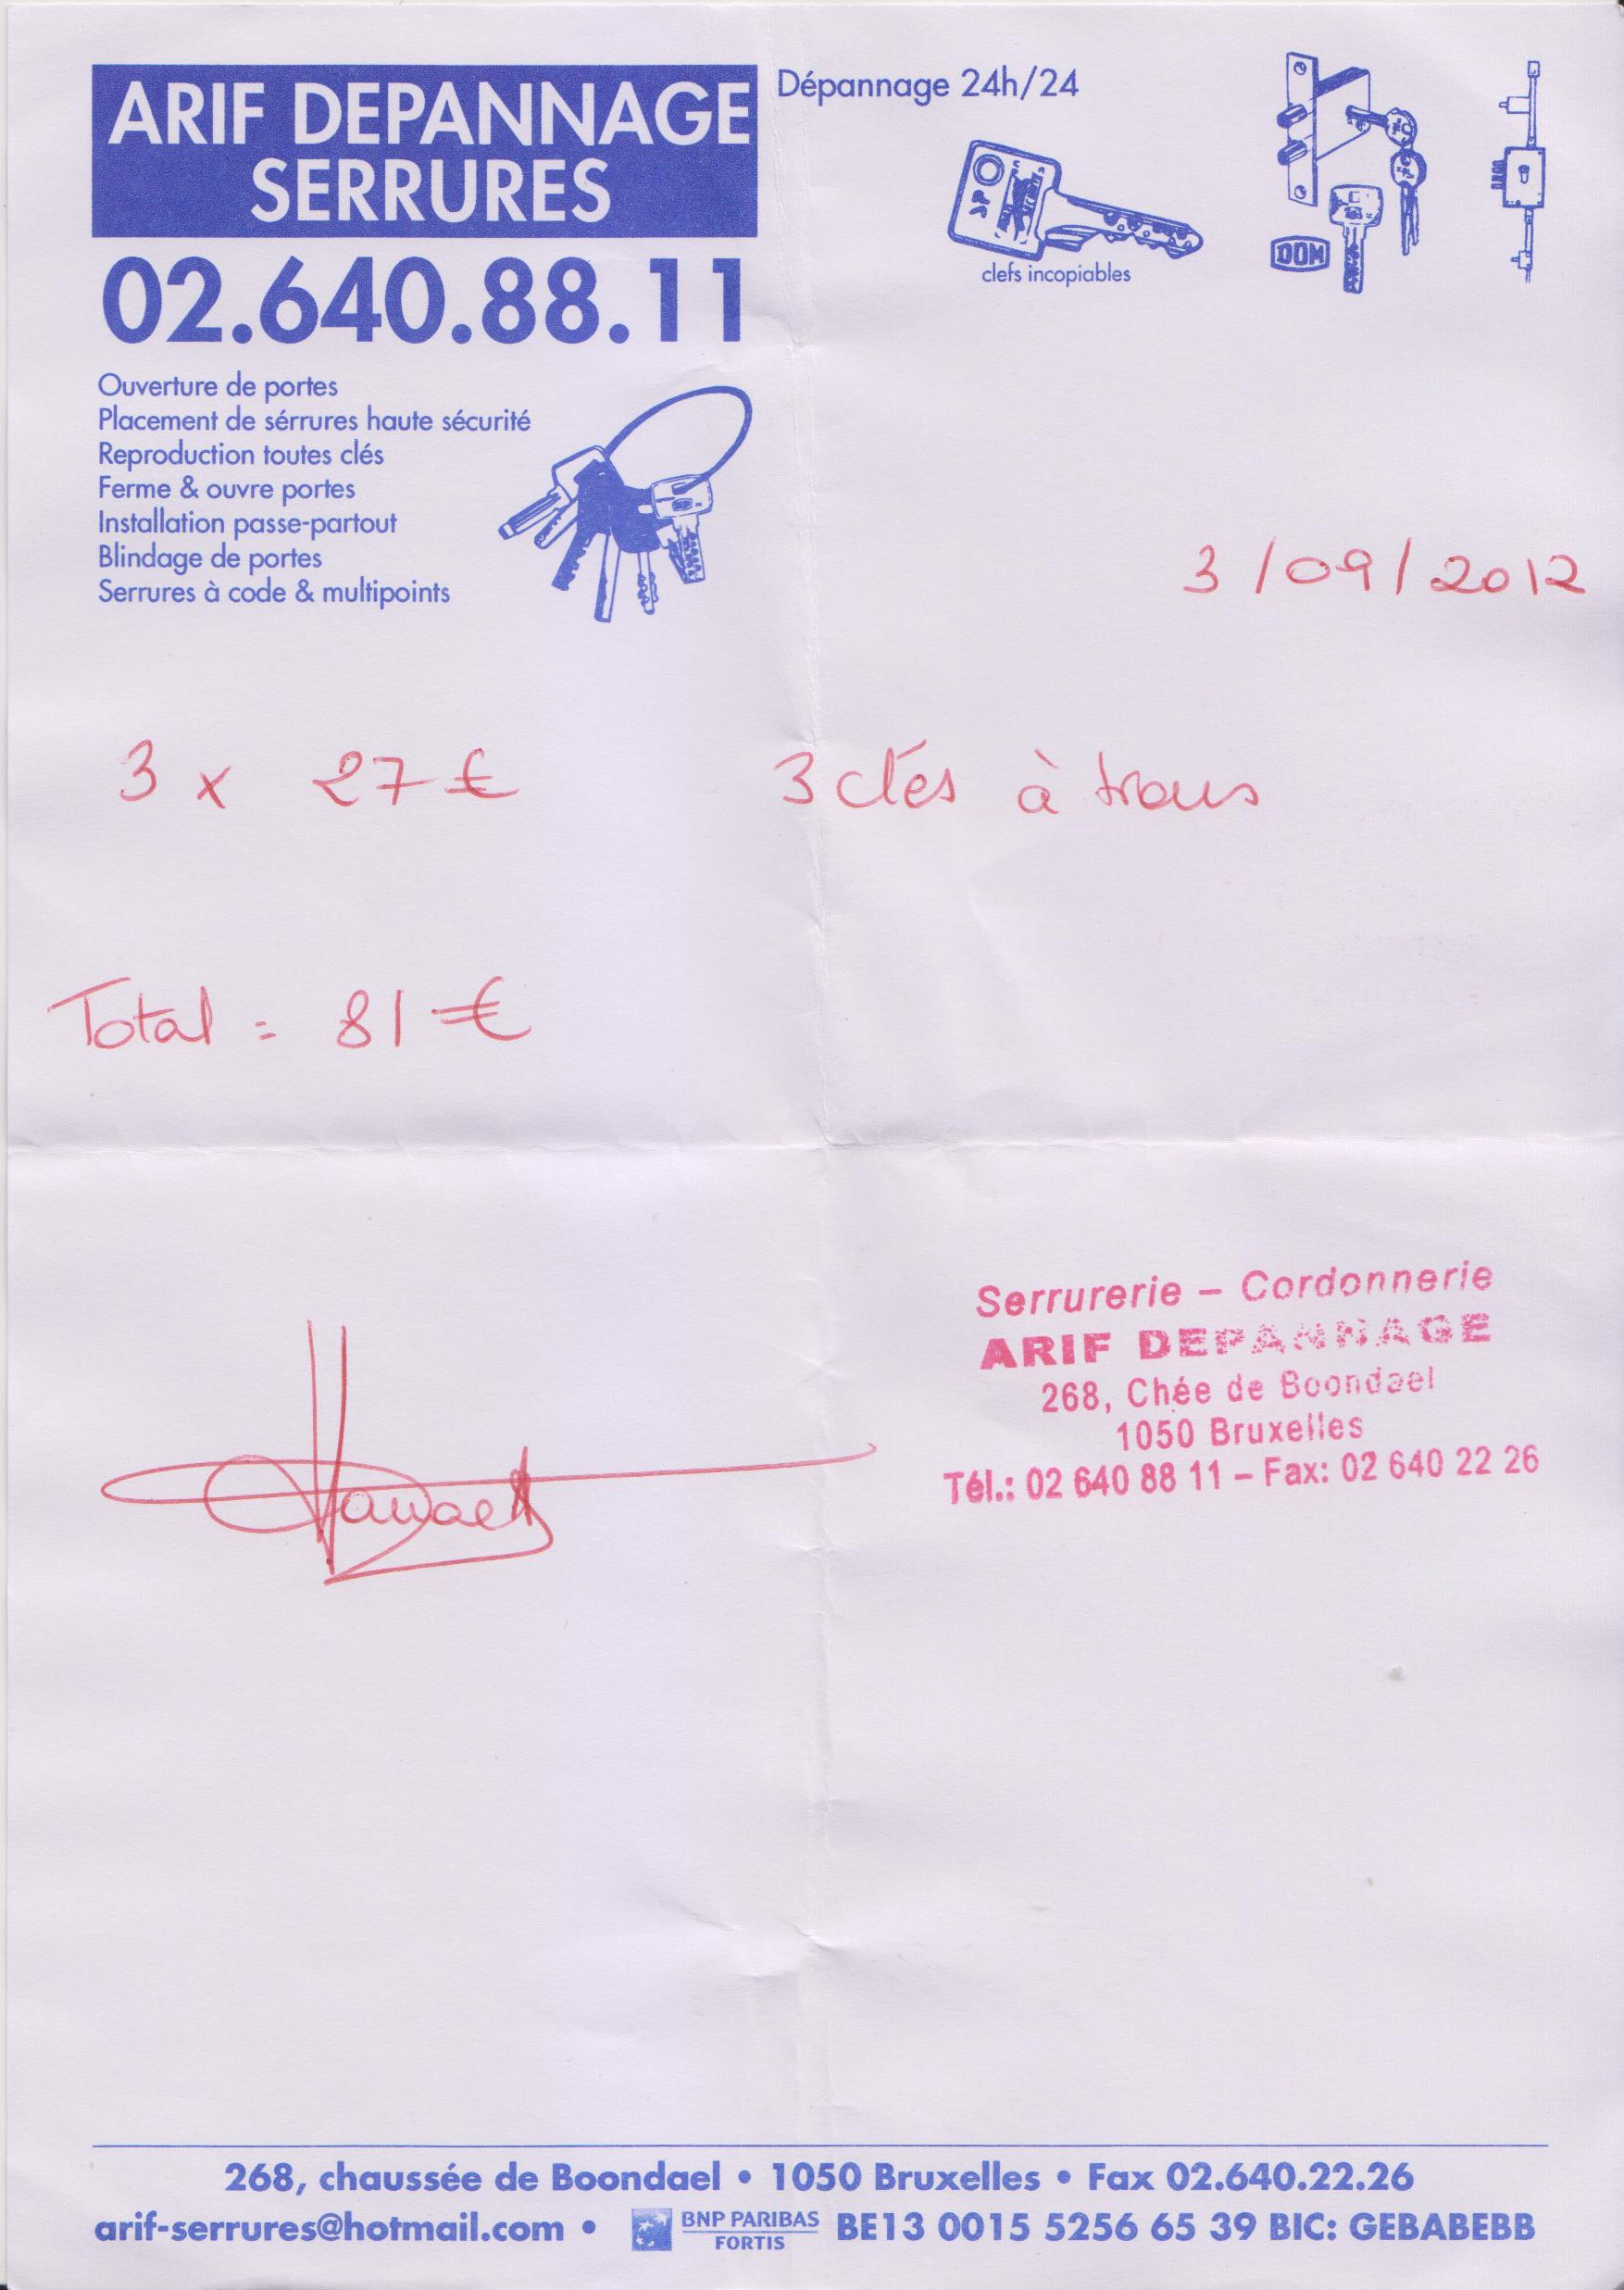 ARIF DEPANNAGE
SERRURES
Dépannage 24h/24
clefs incopiables
DOM
02.640.88.11
Ouverture de portes
Placement de sérrures haute sécurité
Reproduction toutes clés
Ferme & ouvre portes
Installation passe-partout
Blindage de portes
Serrures à code & multipoints
3/09/2012
3 x 27 € 3 clés à trous
Total = 81 €
Serrurerie – Cordonnerie
ARIF DEPANNAGE
268, Chée de Boondael
1050 Bruxelles
Tél.: 02 640 88 11 – Fax: 02 640 22 26
268, chaussée de Boondael • 1050 Bruxelles • Fax 02.640.22.26
arif-serrures@hotmail.com • BNP PARIBAS FORTIS BE13 0015 5256 65 39 BIC: GEBABEBB